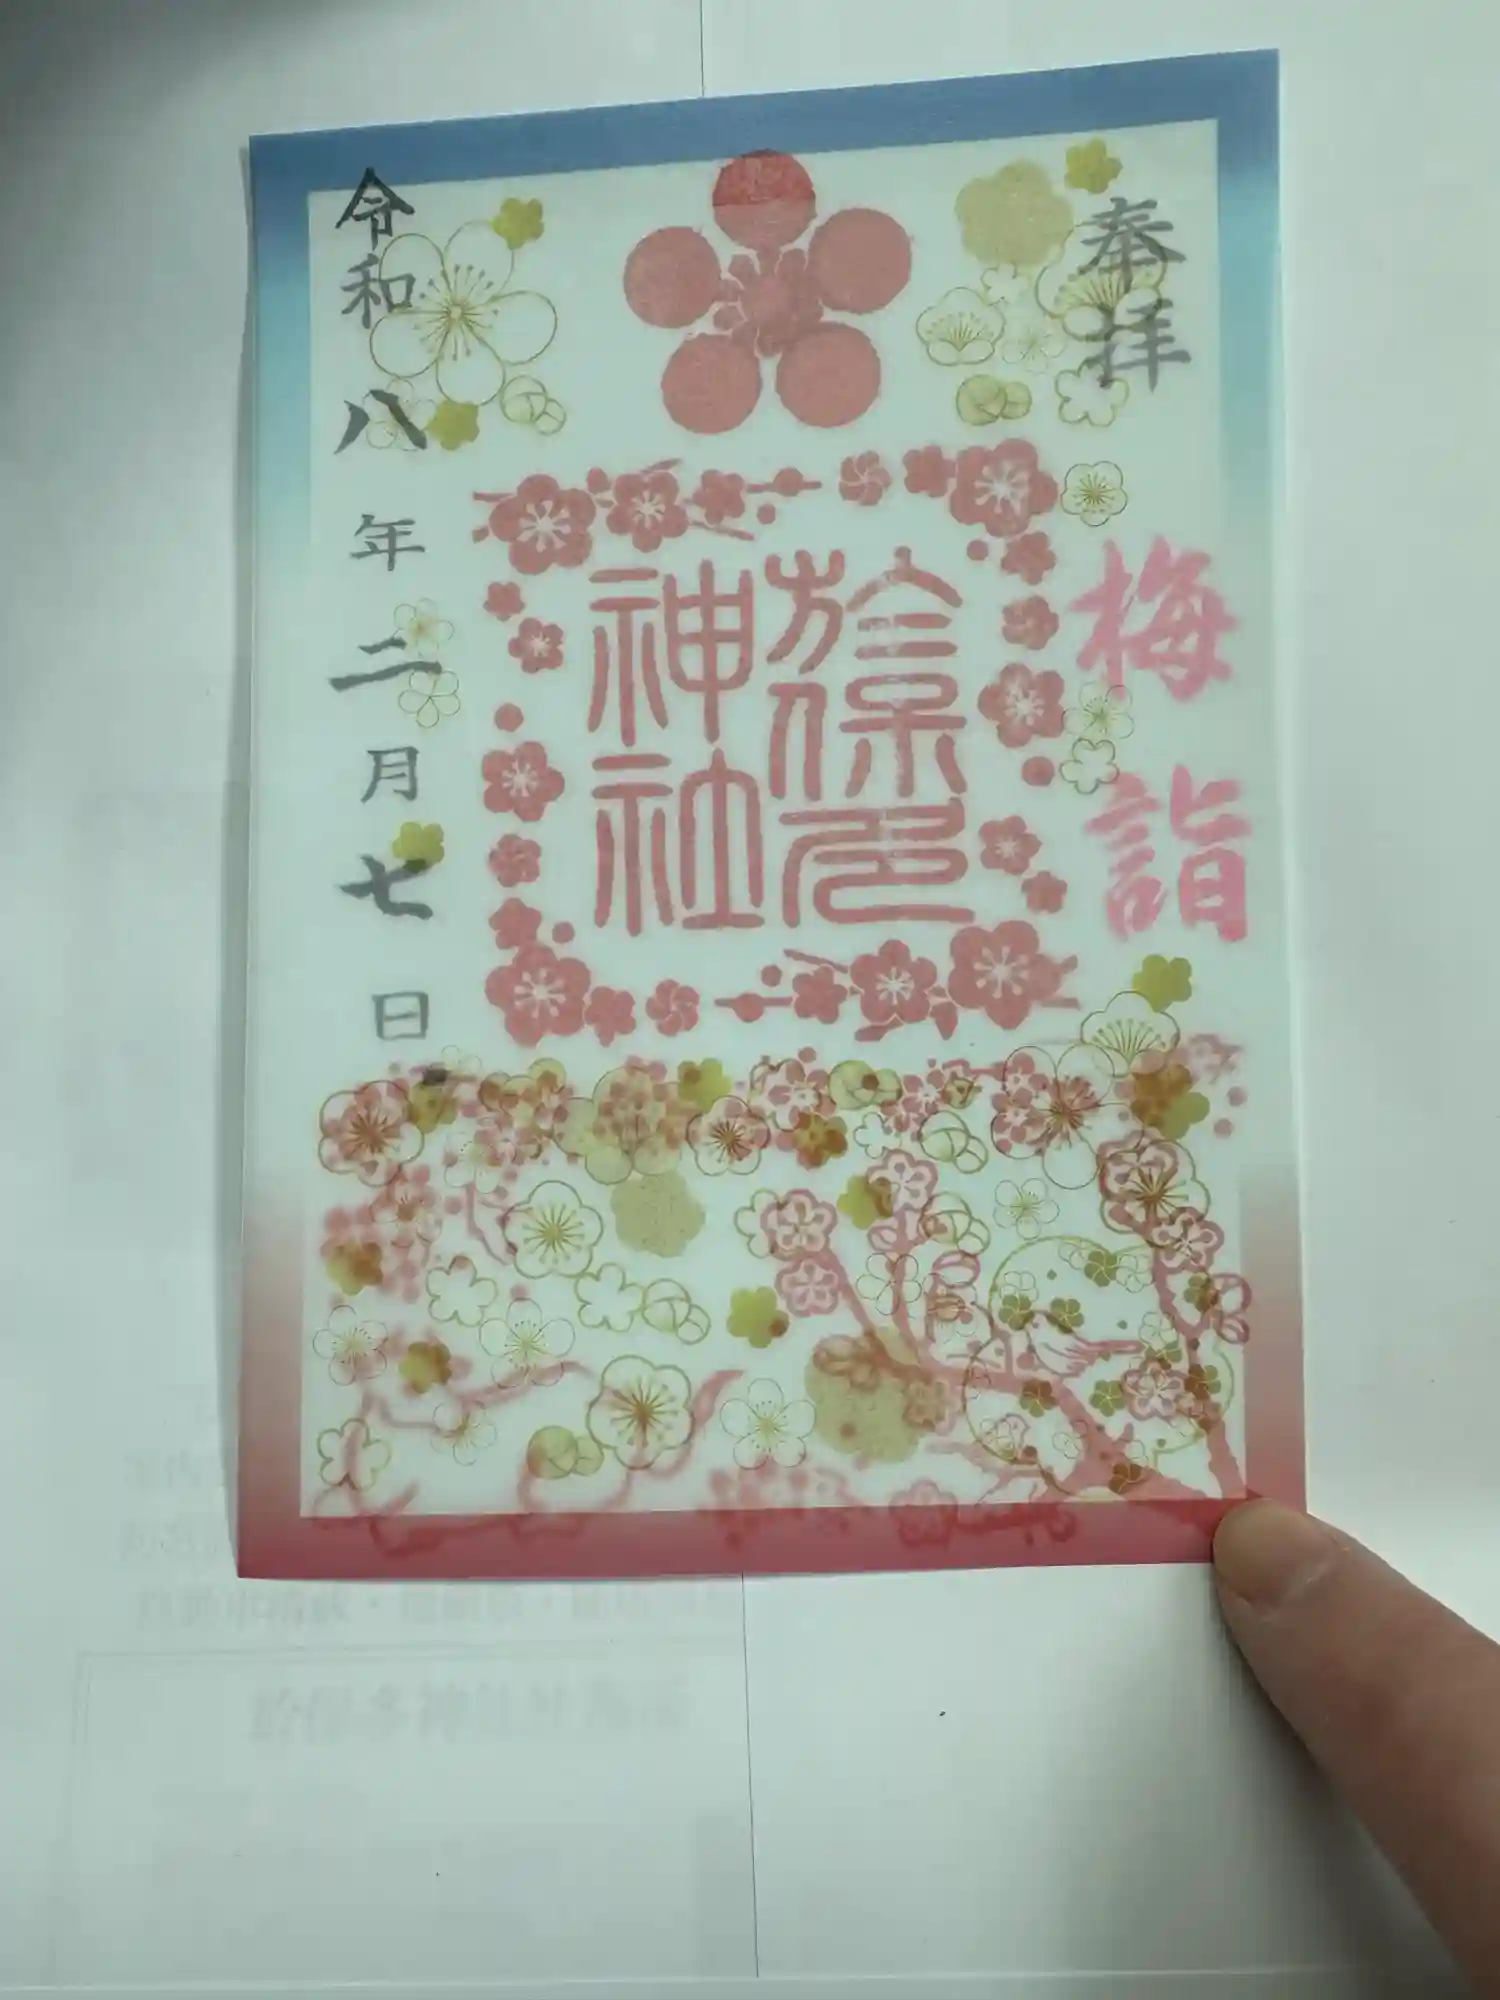 奉拝
梅詣
於保多
神社
令和八年二月七日